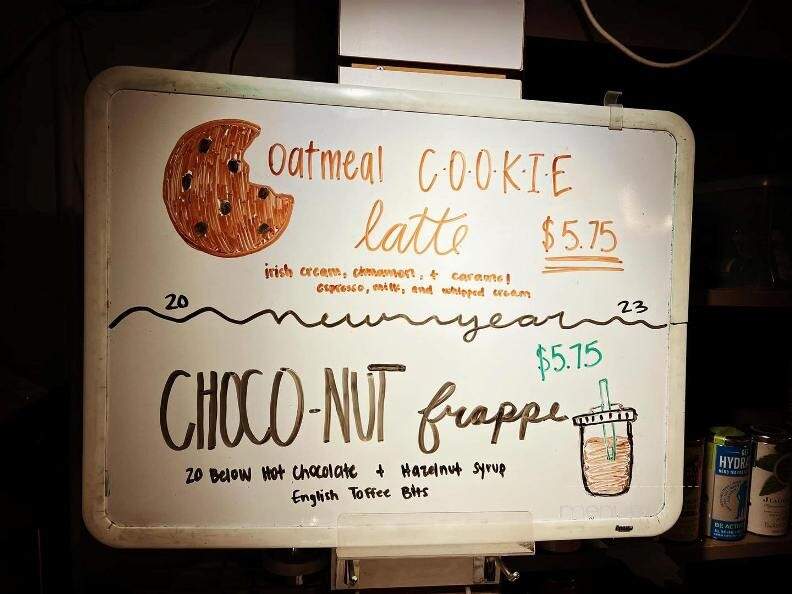 Oatmeal C·O·O·K·I·E
latte
$5.75
irish cream, cinnamon, + caramel
espresso, milk, and whipped cream
20 new year 23
$5.75
CHOCO-NUT frappe
20 Below Hot Chocolate + Hazelnut Syrup
English Toffee Bits
HYDR
BE ACTI